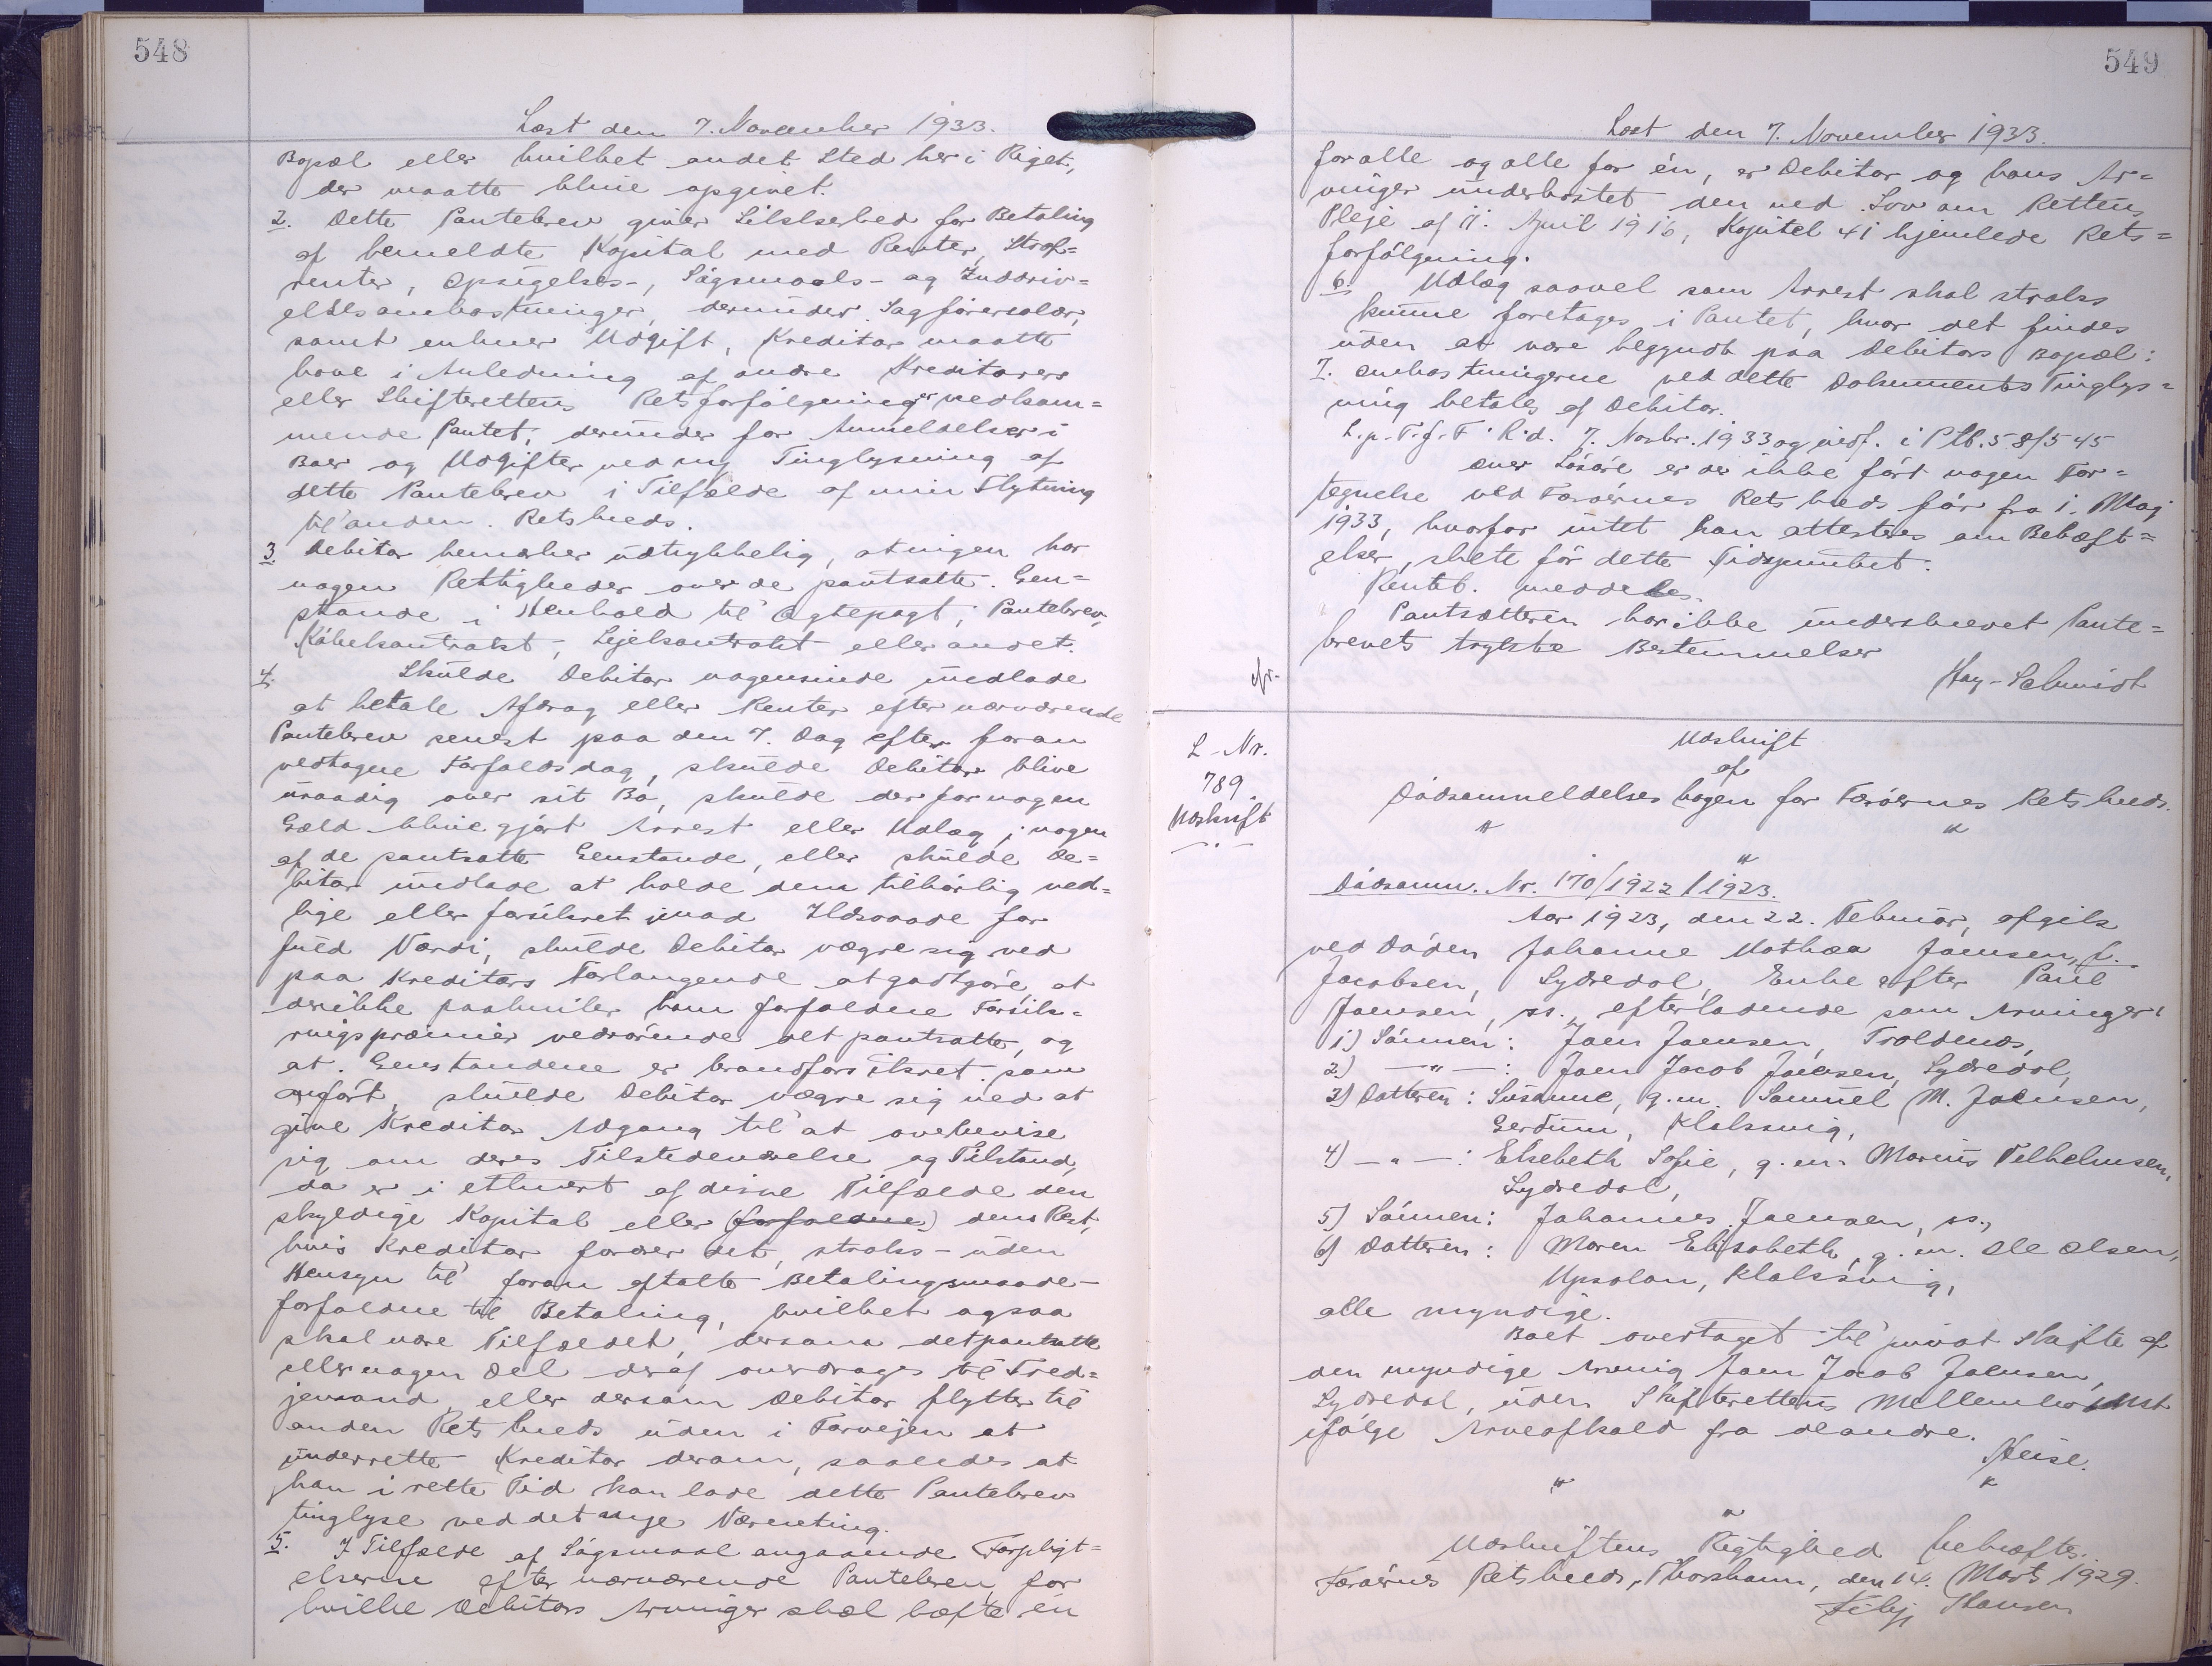 548
Læst den 7. November 1933.
Bopæl eller hvilket andet Sted her i Riget,
der maatte blive opgivet.
2. Dette Pantebrev giver Sikkerhed for Betaling
af bemeldte Kapital med Renter, Straf=
renter, Opsigelses-, Søgsmaals- og Inddriv=
elsesomkostninger, derunder Sagførersalær,
samt enhver Udgift, Kreditor maatte
have i Anledning af andre Kreditorers
eller Skifterettens Retsforfølgninger vedkom=
mende Pantet, derunder for Anmeldelser i
Boer og Udgifter ved ny Tinglysning af
dette Pantebrev i Tilfælde af min Flytning
til anden Retskreds.
3. Debitor bemærker udtrykkelig, at ingen har
nogen Rettigheder over de pantsatte Gen=
stande i Henhold til Ægtepagt, Pantebrev,
Købekontrakt, Lejekontrakt eller andet.
4. Skulde Debitor nogensinde undlade
at betale Afdrag eller Renter efter nærværende
Pantebrev senest paa den 7. Dag efter foran
vedtagne Forfaldsdag, skulde Debitor blive
uraadig over sit Bo, skulde der for nogen
Gæld blive gjort Arrest eller Udlæg i nogen
af de pantsatte Genstande, eller skulde De=
bitor undlade at holde dem tilbørlig ved=
lige eller forsikret imod Ildsvaade for
fuld Værdi, skulde Debitor vægre sig ved
paa Kreditors Forlangende at godtgøre, at
der ikke paahviler ham forfaldne Forsik=
ringspræmier vedrørende det pantsatte, og
at Genstandene er brandforsikret som
anført, skulde Debitor vægre sig ved at
give Kreditor Adgang til at overbevise
sig om deres Tilstedeværelse og Tilstand,
da er i ethvert af disse Tilfælde den
skyldige Kapital eller (forfaldne) dens Rest,
hvis Kreditor fordrer det, straks - uden
Hensyn til foran aftalte Betalingsmaade -
forfalden til Betaling, hvilket ogsaa
skal være Tilfældet, dersom det pantsatte
eller nogen Del deraf overdrages til Tred=
jemand, eller dersom Debitor flytter til
anden Retskreds uden i Forvejen at
underrette Kreditor derom, saaledes at
han i rette Tid kan lade dette Pantebrev
tinglyse ved det nye Værneting.
5. I Tilfælde af Søgsmaal angaaende Forpligt=
elserne efter nærværende Pantebrev, for
hvilke Debitors Arvinger skal hæfte én
549
Læst den 7. November 1933.
for alle og alle for én, er Debitor og hans Ar=
vinger underkastet den ved Lov om Rettens
Pleje af 11. April 1916, Kapitel 41 hjemlede Rets=
forfølgning.
6. Udlæg saavel som Arrest skal straks
kunne foretages i Pantet, hvor det findes
uden at være begyndt paa Debitors Bopæl.
7. Omkostningerne ved dette Dokuments Tinglys=
ning betales af Debitor.
L. p. T. f. F. R.d. 7. Novbr. 1933 og indf. i Ptb. 58/545
Over Løsøre er der ikke ført nogen For=
tegnelse ved Færøernes Retskreds før fra 1. Maj
1933, hvorfor intet kan attesteres om Behæft=
elser, skete før dette Tidspunkt.
Pantsætteren har ikke underskrevet Pante=
brevets trykte Bestemmelser
Hay-Schmidt
L-Nr.
789.
Udskrift
Udskrift
af
Dødsanmeldelsesbogen for Færøernes Retskreds.
Dødsanm. Nr. 170/1922/1923.
Aar 1923, den 22. Februar, afgik
ved Døden Johanne Mathea Joensen, f.
Jacobsen, Sydredal, Enke efter Paul
Joensen, ss., efterladende som Arvinger:
1) Sønnen: Joen Joensen, Troldenæs,
2) —"—: Joen Jacob Joensen, Sydredal,
3) Datteren: Susanne, g.m. Samuel M. Joensen,
Gerdum, Klaksvig,
4) —"—: Elsebeth Sofie, g.m. Marius Vilhelmsen,
Sydredal,
5) Sønnen: Johannes Joensen, ss.,
6) Datteren: Maren Elisabeth, g.m. Ole Olsen,
Upsalon, Klaksvig,
alle myndige.
Boet overtaget til privat Skifte af
den myndige Arving Joen Jacob Joensen,
Sydredal, uden Skifterettens Mellemkomst
ifølge Arveafkald fra de andre.
Heise.
Udskriftens Rigtighed bekræftes.
Færøernes Retskreds, Thorshavn, den 14. Marts 1929.
Hansen